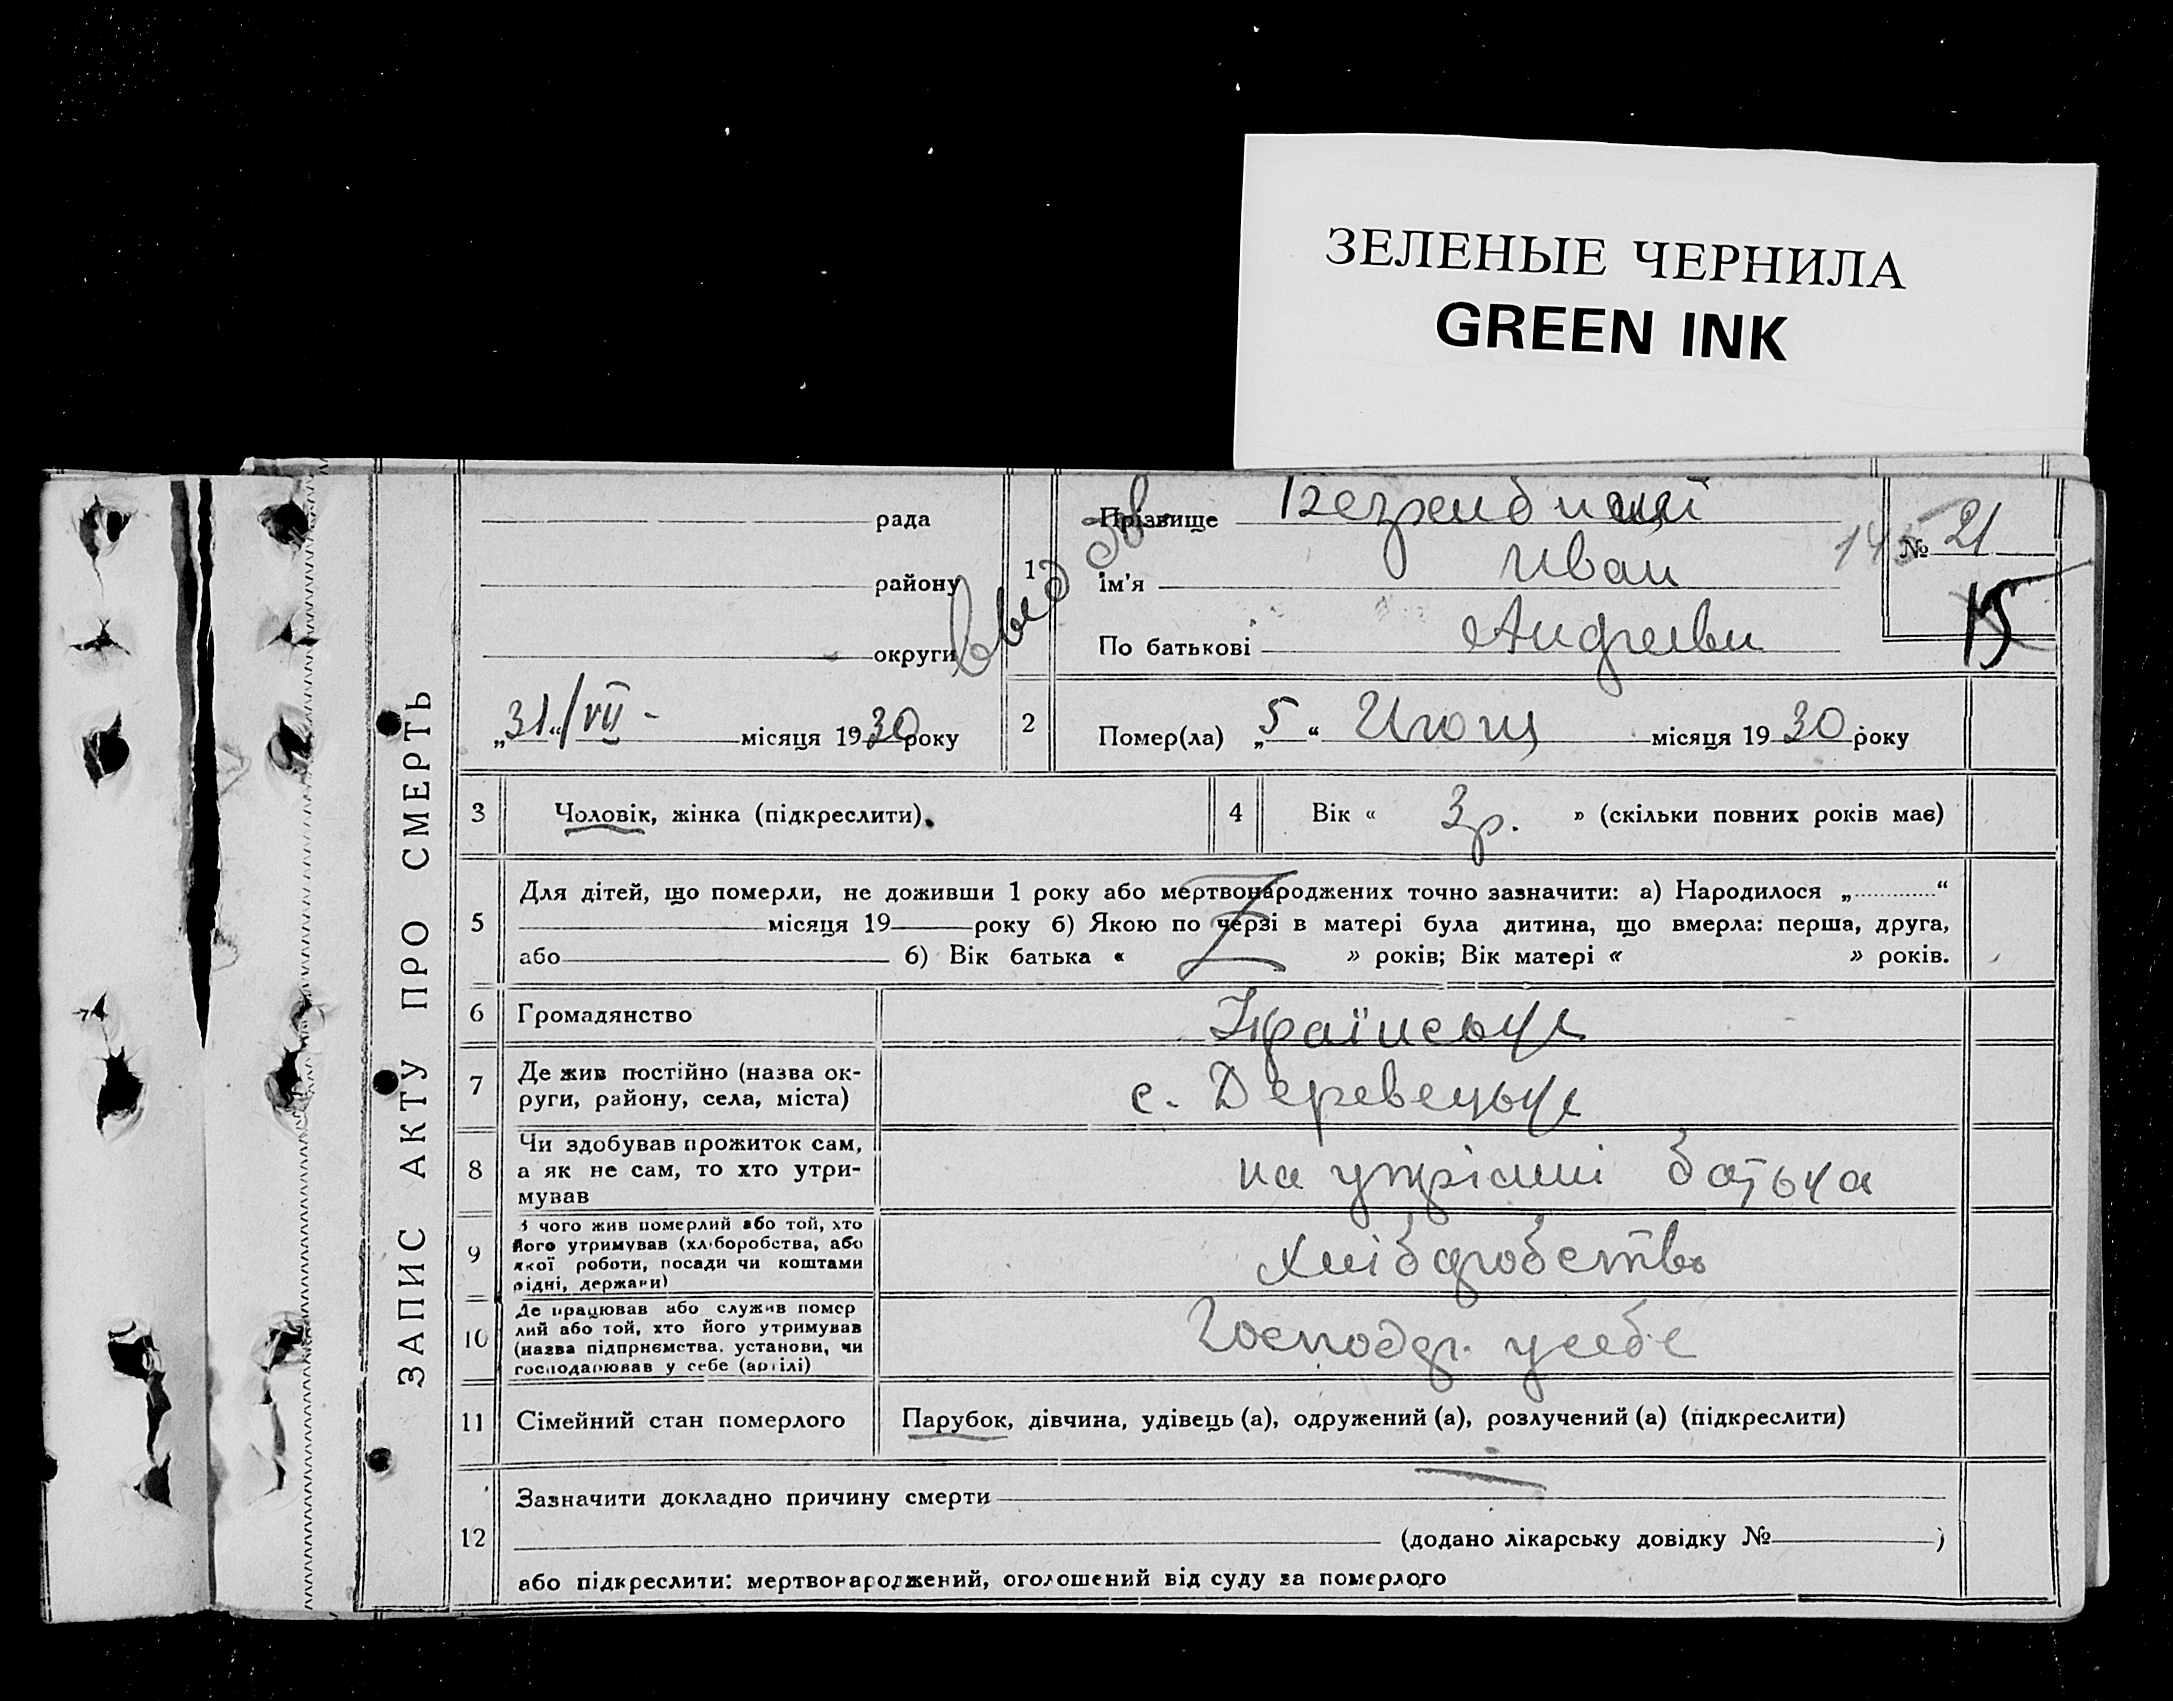 ЗЕЛЕНЫЕ ЧЕРНИЛА
GREEN INK
ЗАПИС АКТУ ПРО СМЕРТЬ
рада
району
округи
„31“/VII - місяця 1930 року
1
Прізвище
Ім'я Иван
По батькові
№ 21
15
2 Помер(ла) „5“ місяця 1930 року
3 Чоловік, жінка (підкреслити).
4 Вік « 3 р. » (скільки повних років має)
5 Для дітей, що померли, не доживши 1 року або мертвонароджених точно зазначити: а) Народилося „ “
місяця 19 року б) Якою по черзі в матері була дитина, що вмерла: перша, друга,
або б) Вік батька « » років; Вік матері « » років.
Z
6 Громадянство Українське
7 Де жив постійно (назва ок-
руги, району, села, міста)
с. Деревецьке
8 Чи здобував прожиток сам,
а як не сам, то хто утри-
мував
на утрімні батька
9 З чого жив померлий або той, хто
його утримував (хліборобства, або
якої роботи, посади чи коштами
рідні, держави)
хліборобство
10 Де працював або служив помер
лий або той, хто його утримував
(назва підприємства, установи, чи
господарював у себе (артілі)
Господар. у себе
11 Сімейний стан померлого Парубок, дівчина, удівець (а), одружений (а), розлучений (а) (підкреслити)
12 Зазначити докладно причину смерти
(додано лікарську довідку № )
або підкреслити: мертвонароджений, оголошений від суду за померлого